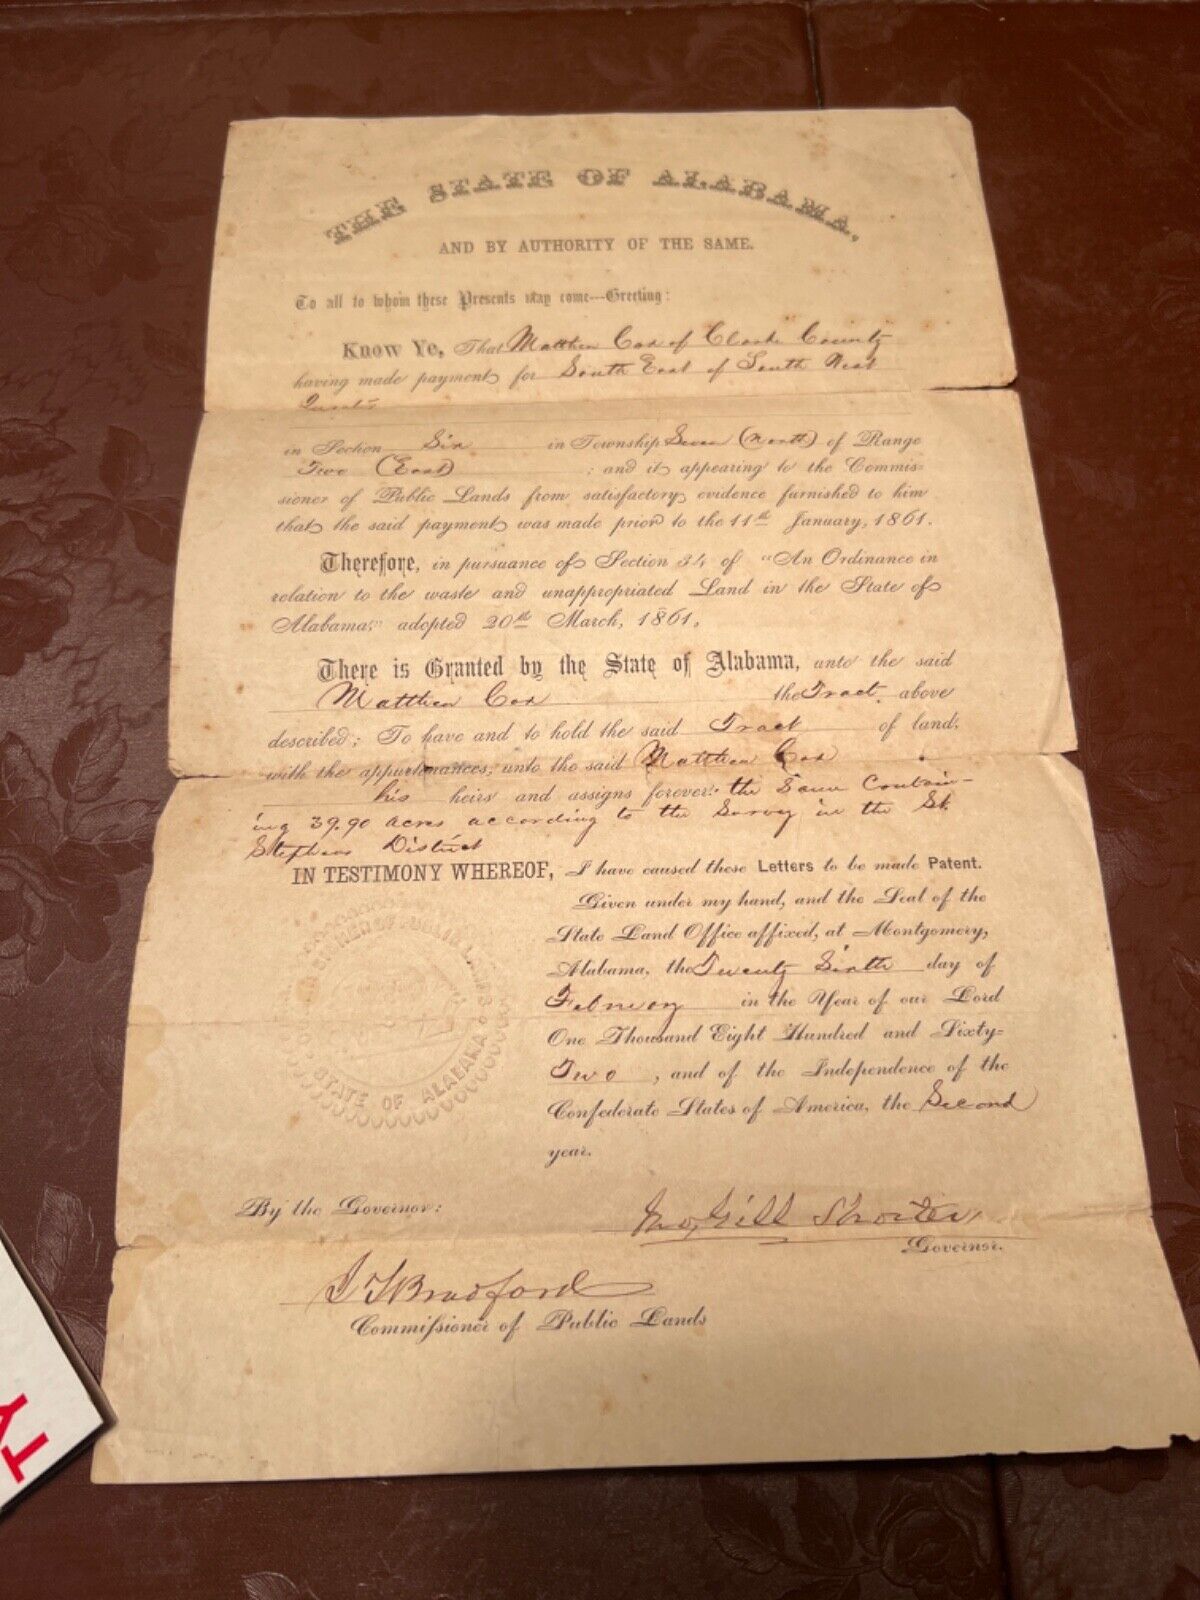 THE STATE OF ALABAMA,
AND BY AUTHORITY OF THE SAME.
To all to whom these Presents may come---Greeting:
Know Ye, That Matthew Cox of Clarke County
having made payment for South East of South West
Quarter
in Section Six in Township Seven (North) of Range
Two (East) ; and it appearing to the Commis-
sioner of Public Lands from satisfactory evidence furnished to him
that the said payment was made prior to the 11th January, 1861.
Therefore, in pursuance of Section 34 of "An Ordinance in
relation to the waste and unappropriated Land in the State of
Alabama," adopted 20th March, 1861,
There is Granted by the State of Alabama, unto the said
Matthew Cox the Tract above
described; To have and to hold the said Tract of land,
with the appurtenances, unto the said Matthew Cox
his heirs and assigns forever: the same contain-
ing 39.90 acres according to the Survey in the St.
Stephens District
IN TESTIMONY WHEREOF, I have caused these Letters to be made Patent.
Given under my hand, and the Seal of the
State Land Office affixed, at Montgomery,
Alabama, the Twenty Sixth day of
February in the Year of our Lord
One Thousand Eight Hundred and Sixty-
Two, and of the Independence of the
Confederate States of America, the Second
year.
OF PUBLIC LANDS
STATE OF ALABAMA
By the Governor:
Jno. Gill Shorter,
Governor.
J T Bradford
Commissioner of Public Lands
TY